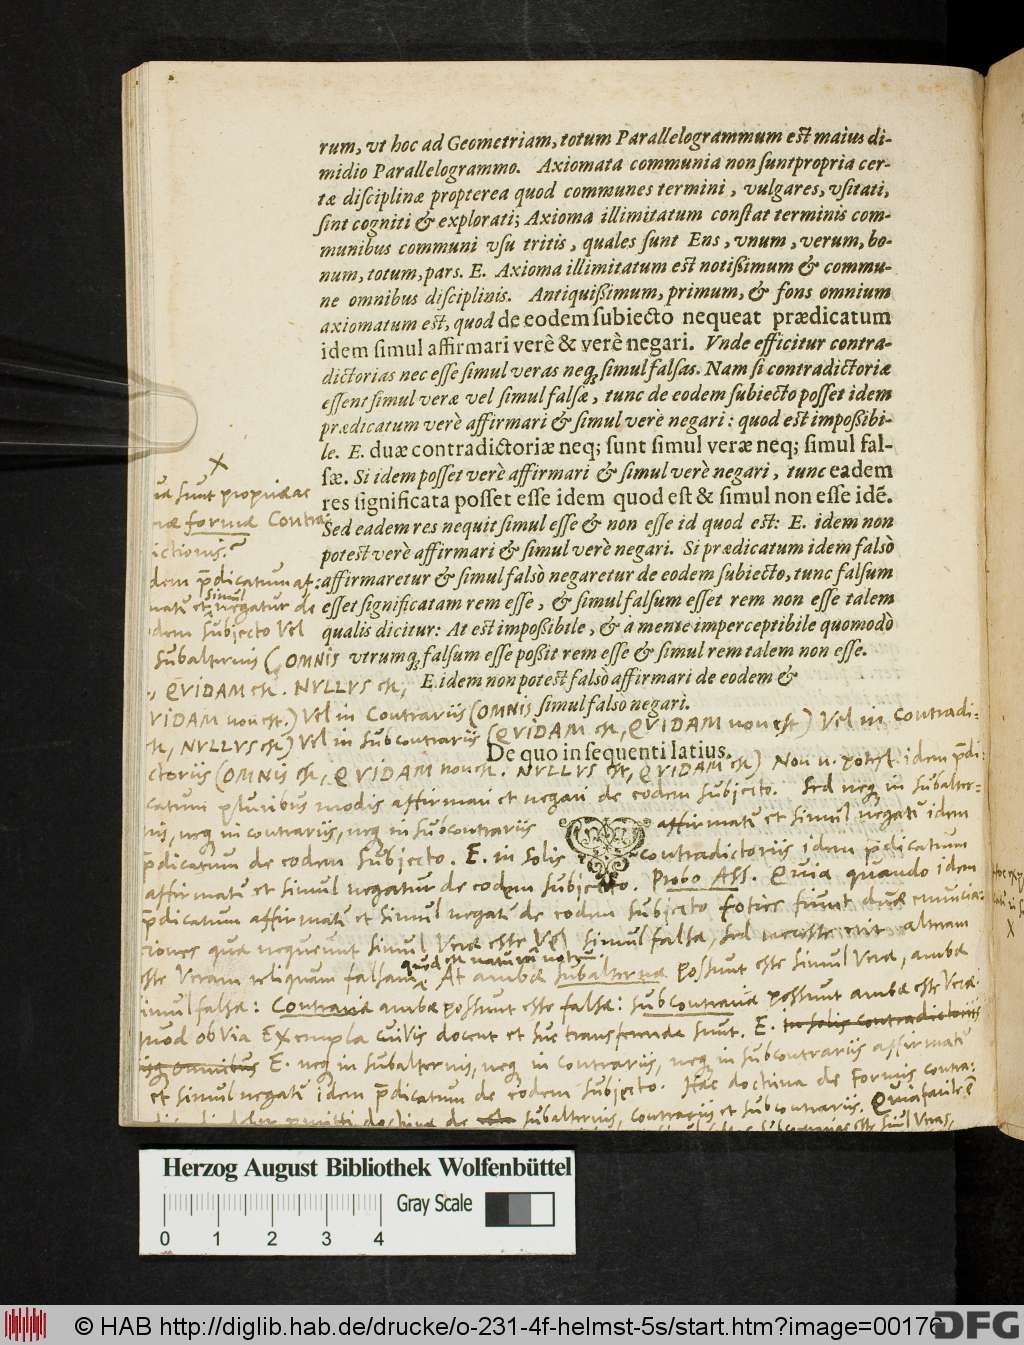 rum, vt hoc ad Geometriam, totum Parallelogrammum est maius di-
midio Parallelogrammo. Axiomata communia non sunt propria cer-
tæ disciplinæ propterea quod communes termini, vulgares, vsitati,
sint cogniti & explorati; Axioma illimitatum constat terminis com-
munibus communi vsu tritis, quales sunt Ens, vnum, verum, bo-
num, totum, pars. E. Axioma illimitatum est notißimum & commu-
ne omnibus disciplinis. Antiquißimum, primum, & fons omnium
axiomatum est, quod de eodem subiecto nequeat prædicatum
idem simul affirmari verè & verè negari. Vnde efficitur contra-
dictorias nec esse simul veras neq; simul falsas. Nam si contradictoriæ
essent simul veræ vel simul falsæ, tunc de eodem subiecto posset idem
prædicatum verè affirmari & simul verè negari: quod est impoßibi-
le. E. duæ contradictoriæ neq; sunt simul veræ neq; simul fal-
sæ. Si idem posset verè affirmari & simul verè negari, tunc eadem
res significata posset esse idem quod est & simul non esse idē.
Sed eadem res nequit simul esse & non esse id quod est: E. idem non
potest verè affirmari & simul verè negari. Si prædicatum idem falsò
affirmaretur & simul falsò negaretur de eodem subiecto, tunc falsum
esset significatam rem esse, & simul falsum esset rem non esse talem
qualis dicitur: At est impoßibile, & a mente imperceptibile quomodò
vtrumq; falsum esse poßit rem esse & simul rem talem non esse.
E. idem non potest falsò affirmari de eodem &
simul falso negari.
De quo in sequenti latius.
X
sunt propriæ ac
formæ Contra-
dictionis?
dem p̄dicatum af-
simul
et negatur de
dem subjecto Vel
Subalternis (OMNIS
QVIDAM est. NVLLVS est,
VIDAM non est.) Vel in Contrariis (OMNIS
est, NVLLVS est) Vel in Subcontrariis (QVIDAM est, QVIDAM non est) Vel in Contradi-
ctoriis (OMNIS est, QVIDAM non est. NVLLVS est, QVIDAM est) Non n. potest idem p̄di-
catum pluribus modis affirmari et negari de eodem subjecto. Sed neq; in subalter-
nis, neq; in contrariis, neq; in subcontrariis affirmatur et simul negatur idem
p̄dicatum de eodem Subjecto. E. in solis contradictoriis idem p̄dicatum
affirmatur et simul negatur de eodem subjecto. Probo ASS. Quia quando idem
p̄dicatum affirmatur et simul negatur de eodem subjecto toties fiunt duæ enuncia-
tiones quæ nequeunt simul Veræ esse Vel simul falsæ, sed necesse erit alteram
esse Veram reliquam falsam. At ambæ subalternæ possunt esse simul Veræ, ambæ
simul falsæ: Contrariæ ambæ possunt esse falsæ: subcontrariæ possunt ambæ esse Veræ.
quod obvia Exempla cuivis docent et huc transferenda sunt. E. in solis contradictoriis
omnibus E. neq; in subalternis, neq; in contrariis, neq; in subcontrariis affirmatur
et simul negatur idem p̄dicatum de eodem subjecto. Hæc doctrina de formis contra-
doctrinæ de subalternis, contrariis et subcontrariis. Quia facile
Herzog August Bibliothek Wolfenbüttel
Gray Scale
0 1 2 3 4
© HAB http://diglib.hab.de/drucke/o-231-4f-helmst-5s/start.htm?image=00176
DFG